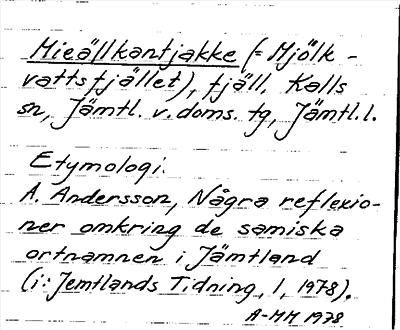 Mieällkantjakke (= Mjölk-
vattsfjället), fjäll, Kalls
sn, Jämtl. v. doms. tg, Jämtl. l.
Etymologi:
A. Andersson, Några reflexio-
ner omkring de samiska
ortnamnen i Jämtland
(i: Jemtlands Tidning, 1, 1978).
A-MM 1978